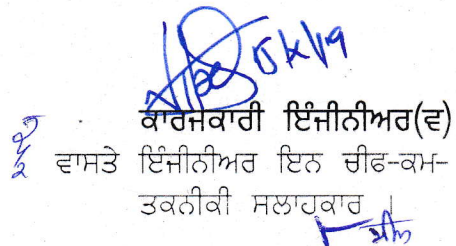 ਕਾਰਜਕਾਰੀ ਇੰਜੀਨੀਅਰ(ਵ)
ਵਾਸਤੇ ਇੰਜੀਨੀਅਰ ਇਨ ਚੀਫ-ਕਮ-
ਤਕਨੀਕੀ ਸਲਾਹਕਾਰ ।